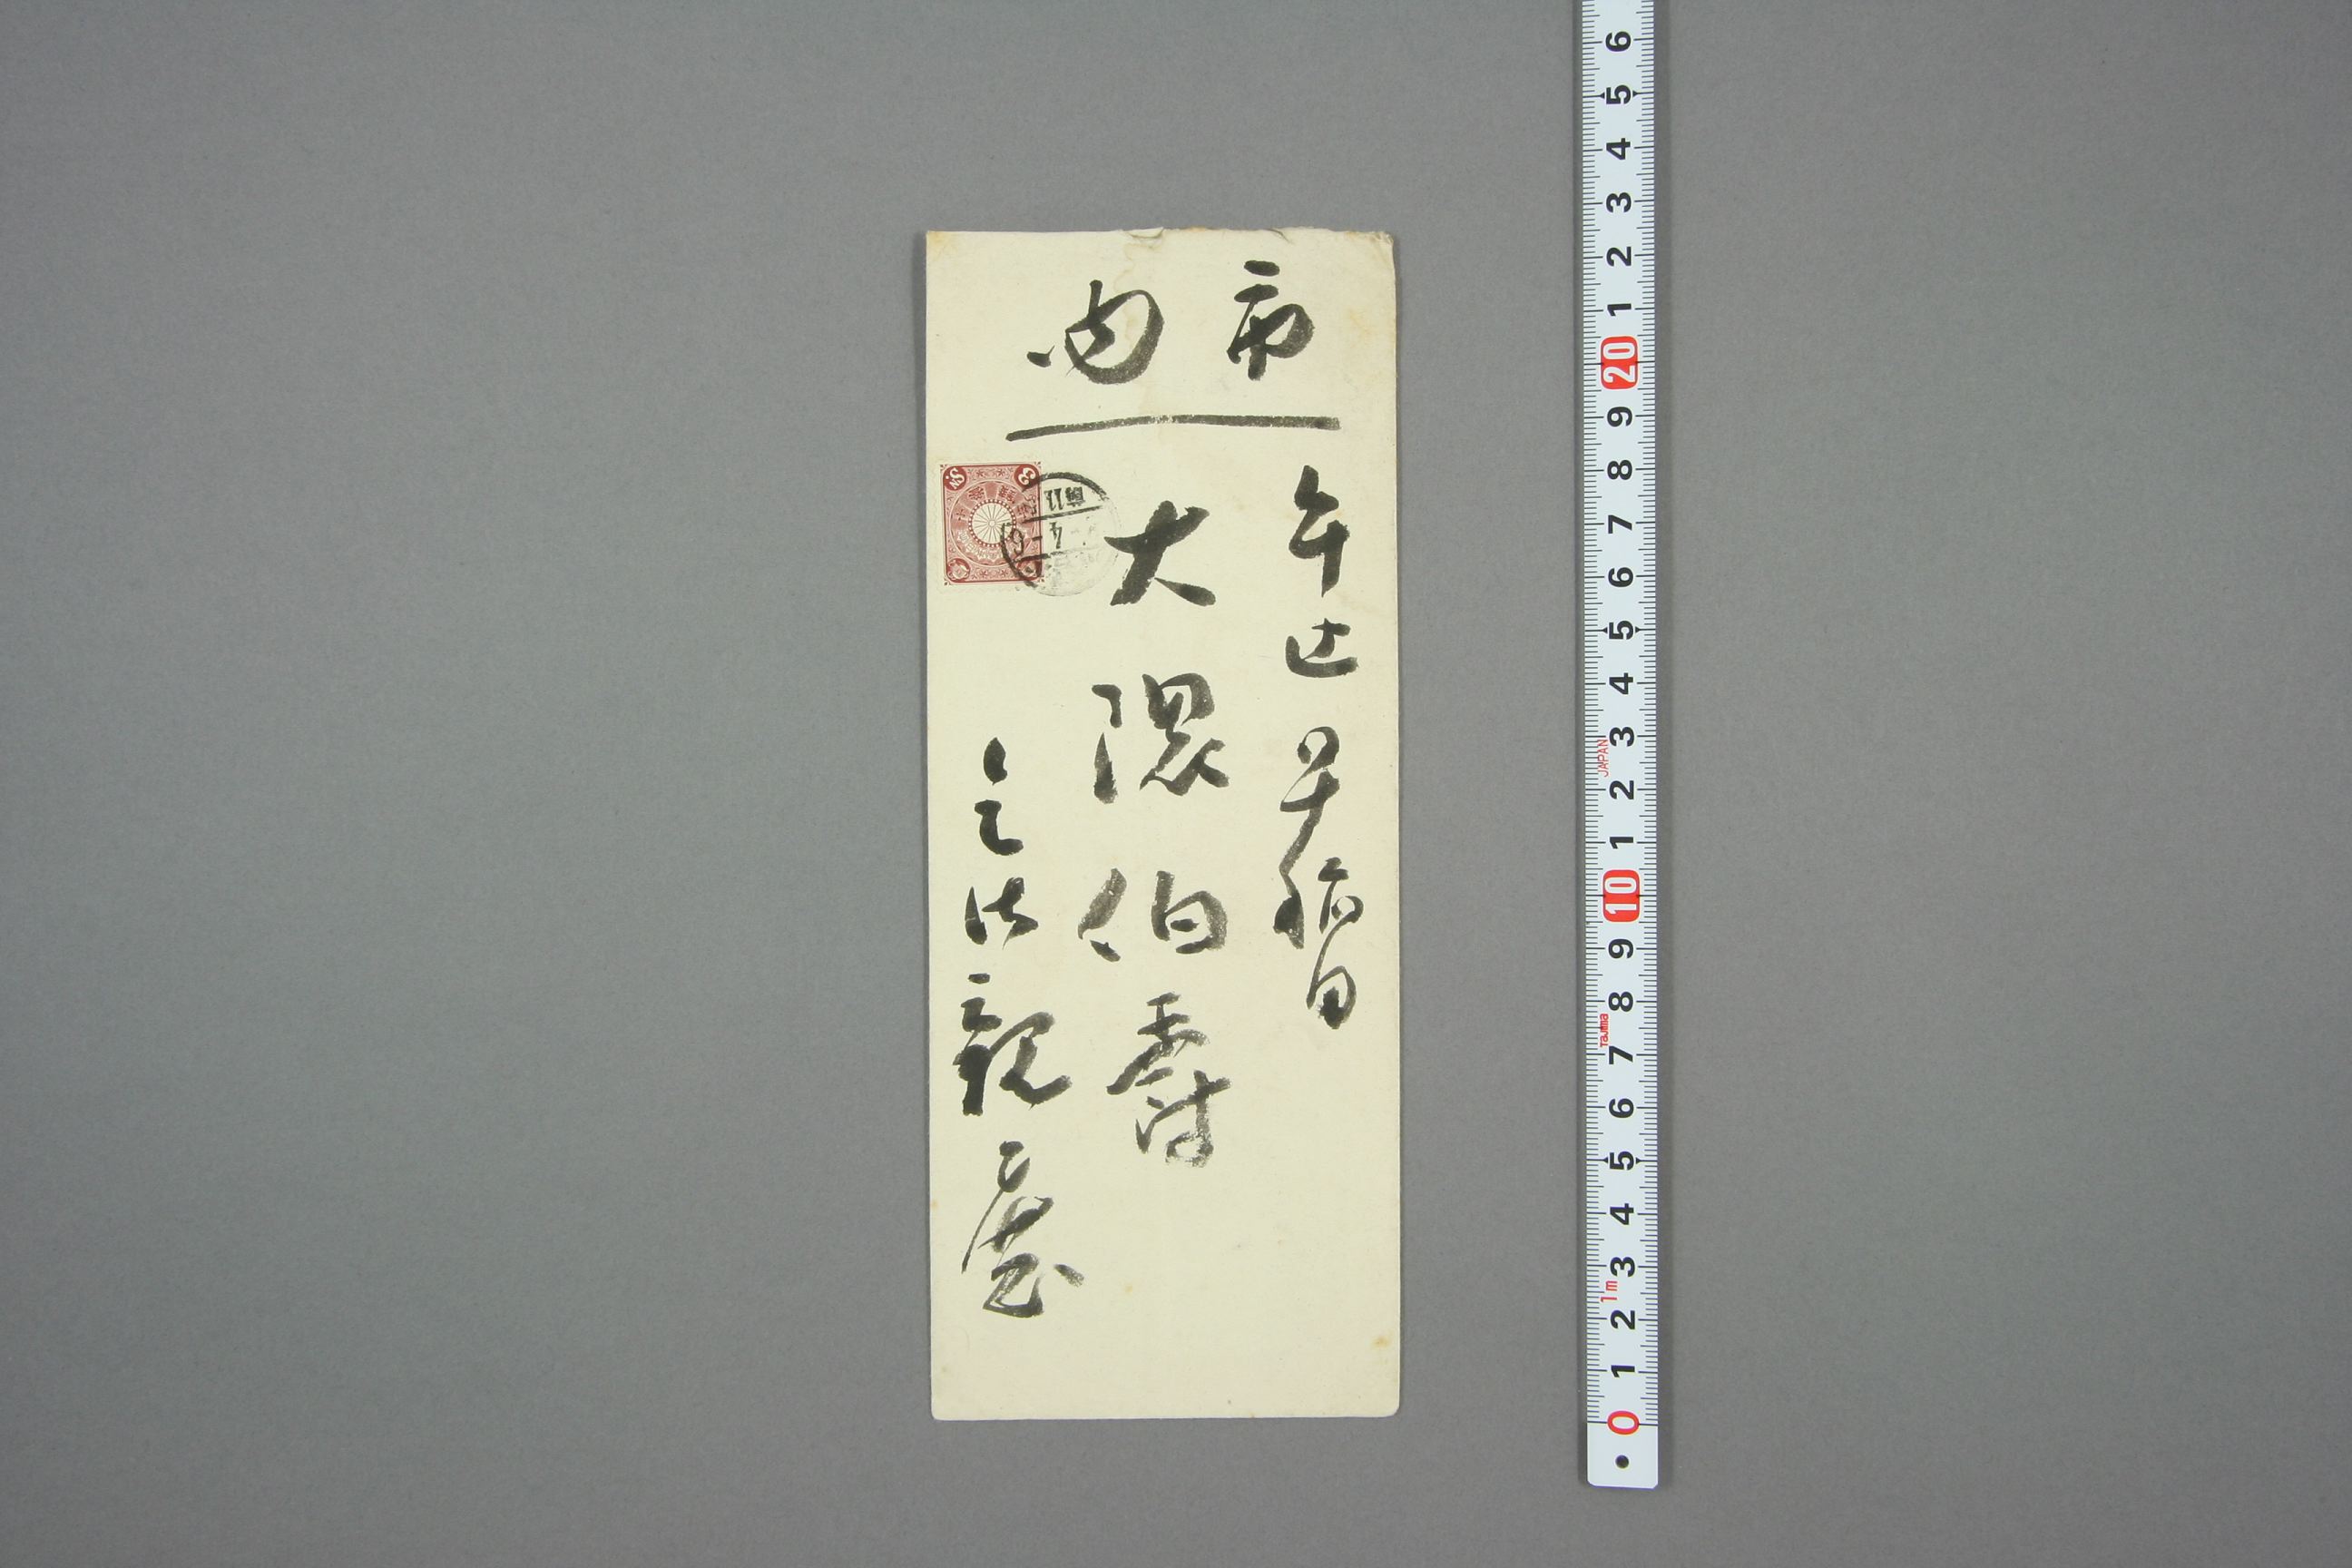 市内
牛込早稲田
大隈伯爵
乞御親展
3 Sn.
6 5 4 3 2 1 20 9 8 7 6 5 4 3 2 1 10 9 8 7 6 5 4 3 2 1 0
JAPAN
Tajima
1m